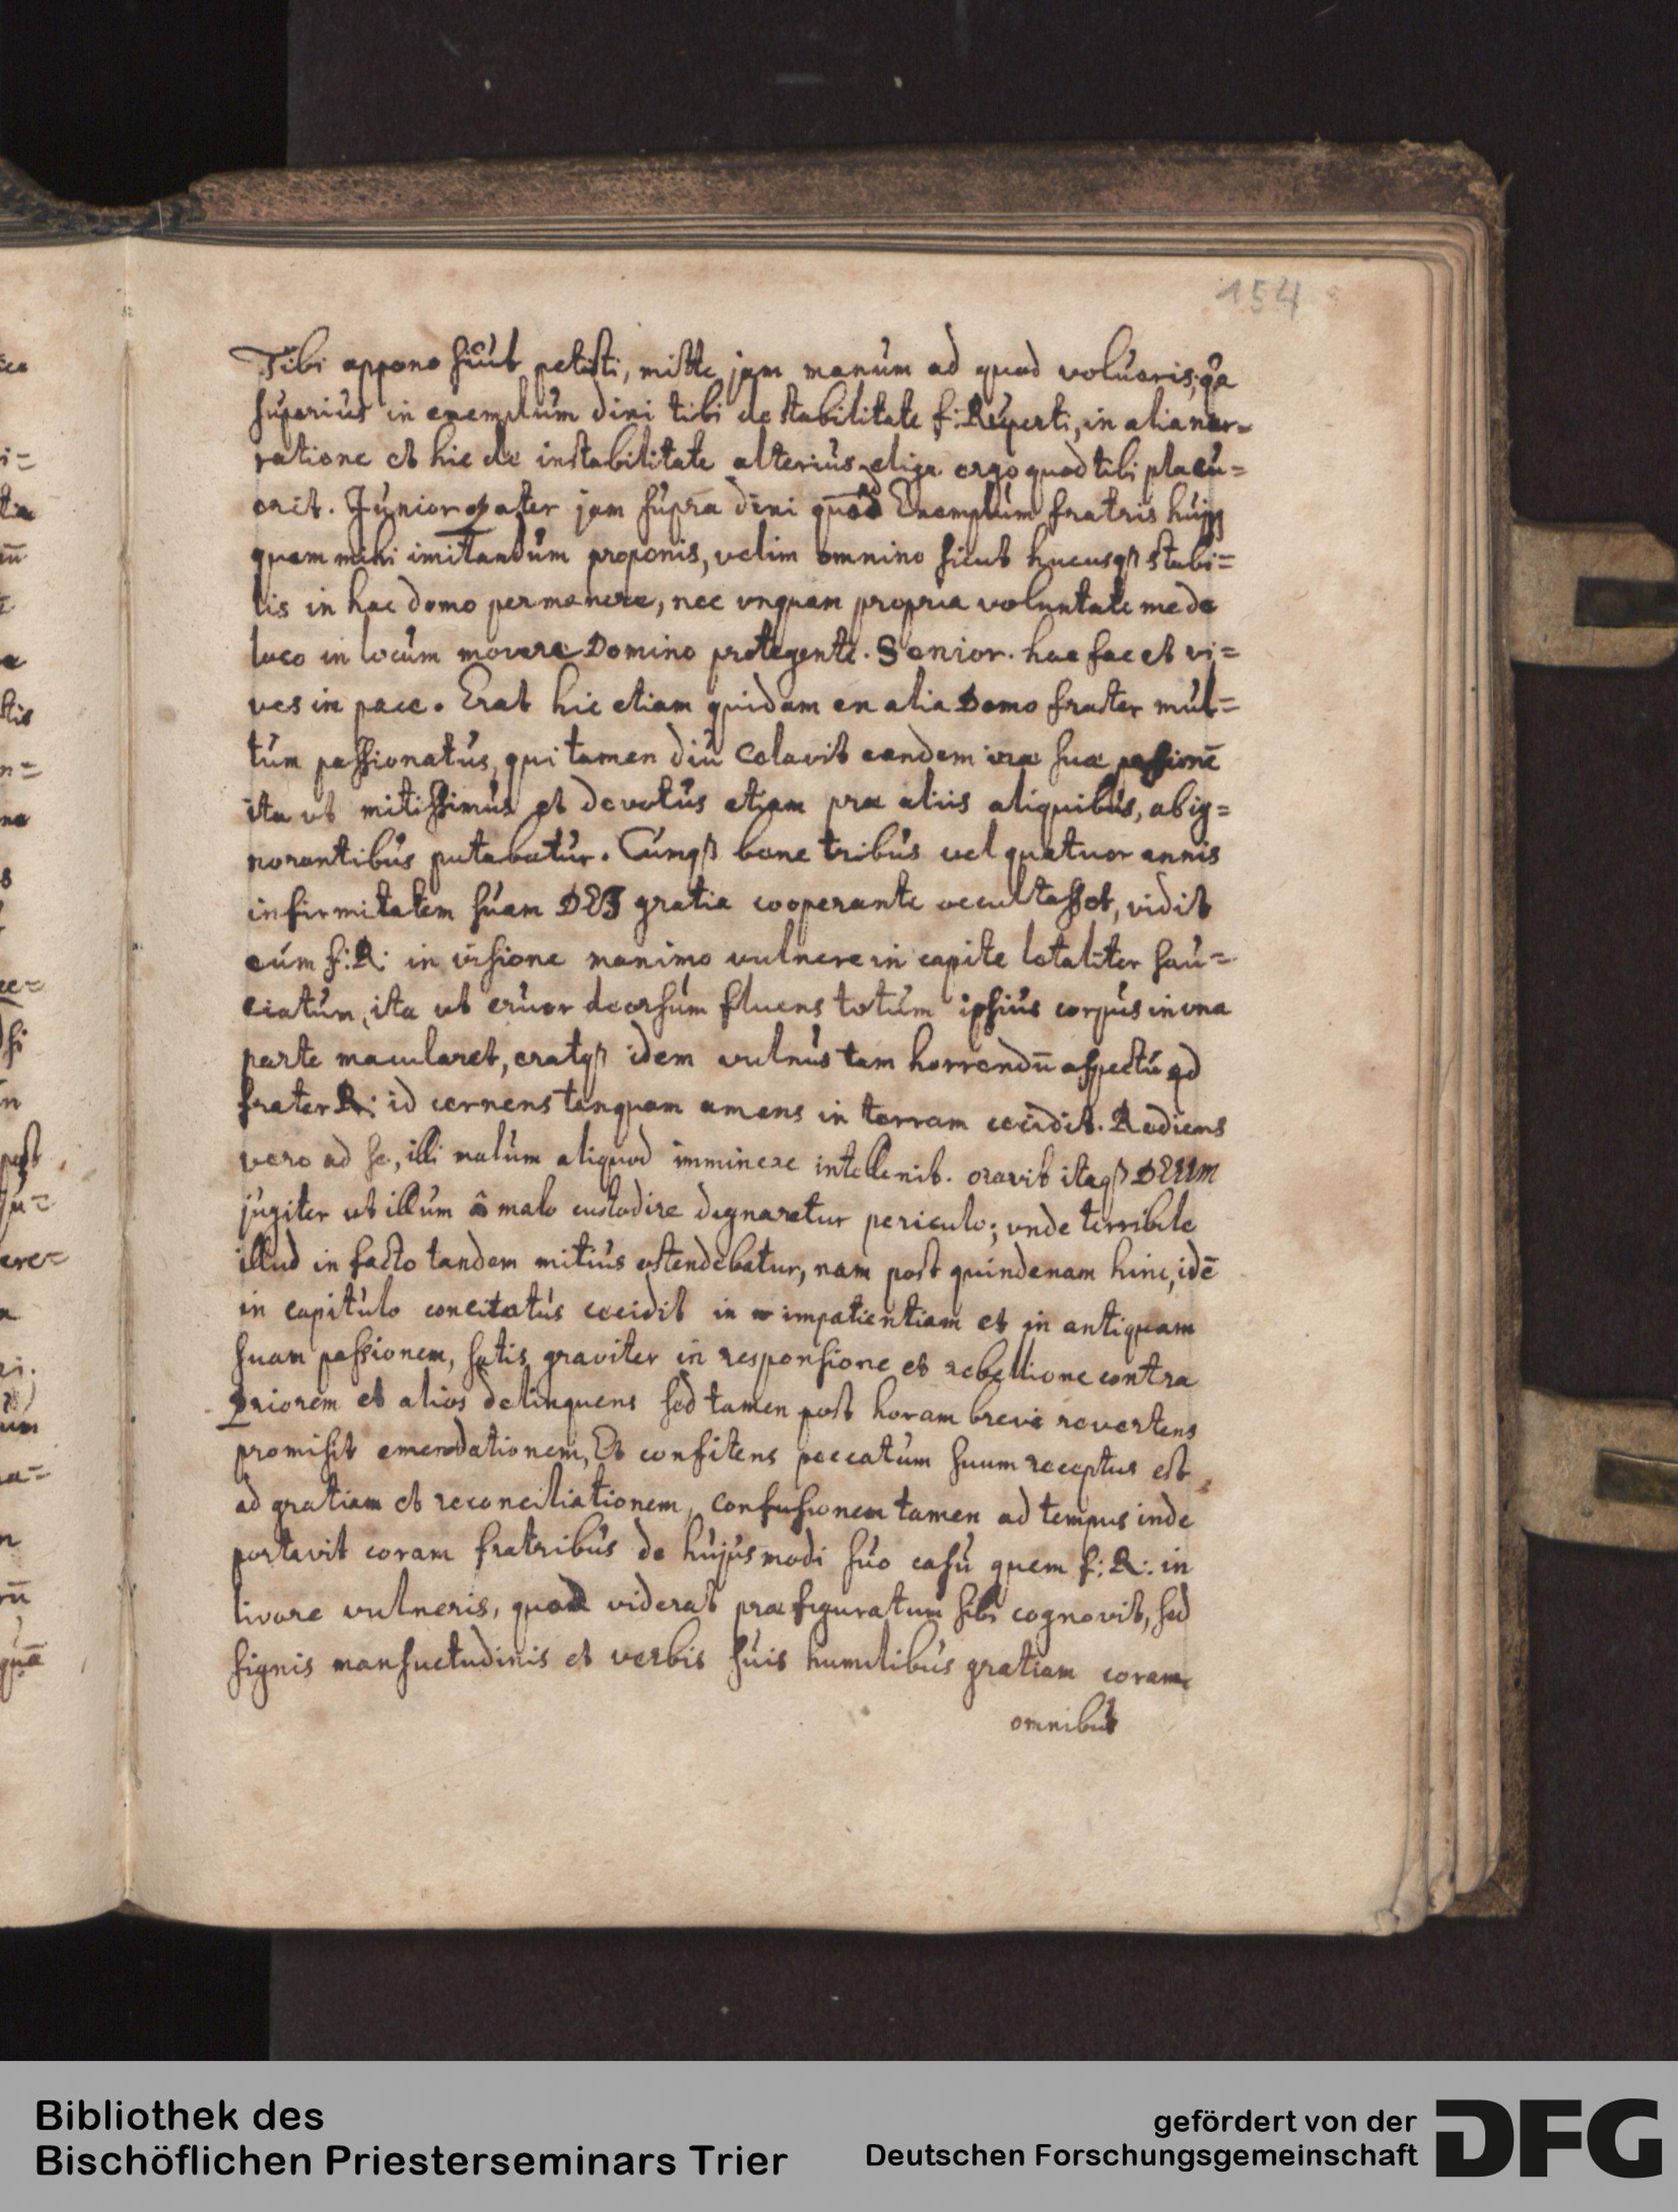 154
Tibi appono sicut petisti, mitte jam manum ad quod volueris; qa
superius in exemplum dixi tibi de stabilitate f: Ruperti, in alia nar=
ratione et hic de instabilitate alterius, elige ergo quod tibi placu=
erit. Junior pater jam supra dixi quod Exemplum fratris hujq
quem mihi imitandum proponis, velim omnino sicut hucusqß stabi=
lis in hac domo permanere, nec unquam propria voluntate me de
loco in locum movere Domino protegente. Senior. hac fac et vi=
ves in pace. Erat hic etiam quidam ex alia Domo frater mul=
tum passionatus, qui tamen diu Celavit eandem iræ suæ passionē
ita vt mitissimus et devotus etiam præ aliis aliquibus, ab ig=
norantibus putabatur. Cumqß bene tribus vel quatuor annis
infirmitatem suam DEI gratia cooperante occultasset, vidit
eum f: R: in visione maximo vulnere in capite letaliter sau=
ciatum, ita ut cruor deorsum fluens totum ipsius corpus in una
parte macularet, eratqß idem vulnus tam horrendū aspectu qd
frater R: id cernens tanquam amens in terram cecidit. Rediens
vero ad se, illi malum aliquod imminere intellexit. oravit itaqß DEUM
jugiter ut illum â malo custodire dignaretur periculo; vnde terribile
illud in facto tandem mitius ostendebatur, nam post quindenam hinc, idē
in capitulo concitatus cecidit in impatientiam et in antiquam
suam passionem, satis graviter in responsione et rebellione contra
Priorem et alios delinquens sed tamen post horam brevē revertens
promisit emendationem, Et confitens peccatum suum receptus est
ad gratiam et reconciliationem, Confusionem tamen ad tempus inde
portavit coram fratribus de hujusmodi suo casu quem f: R: in
livore vulneris, quod viderat præfiguratum sibi cognovit, sed
signis mansuetudinis et verbis suis humilibus gratiam coram
omnibus
Bibliothek des
Bischöflichen Priesterseminars Trier
gefördert von der
Deutschen Forschungsgemeinschaft
DFG